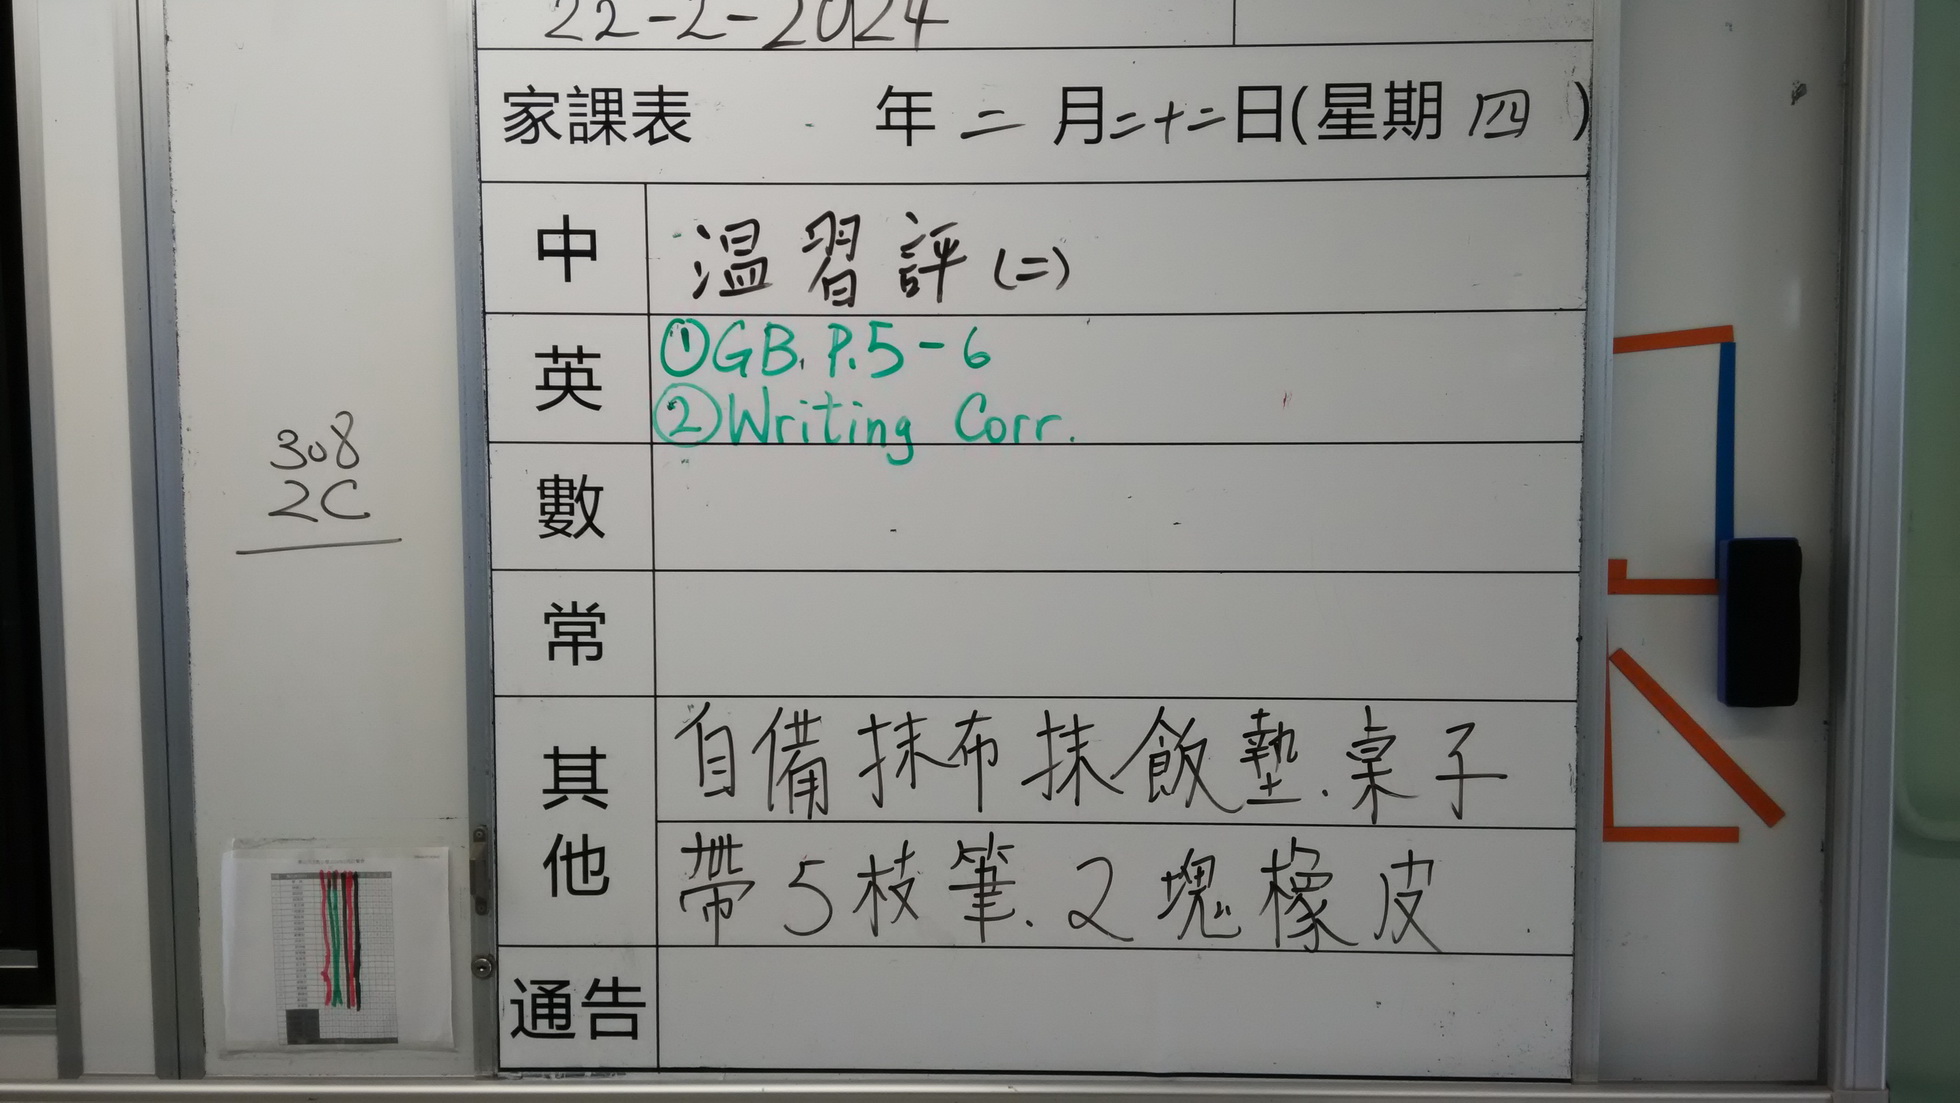 22-2-2024
家課表 年 二 月 二十二 日(星期 四 )
中 温習評(二)
英 ①GB. P.5-6
②Writing Corr.
數
常
其他 自備抹布抹飯墊.桌子
帶5枝筆.2塊橡皮
通告
308
2C